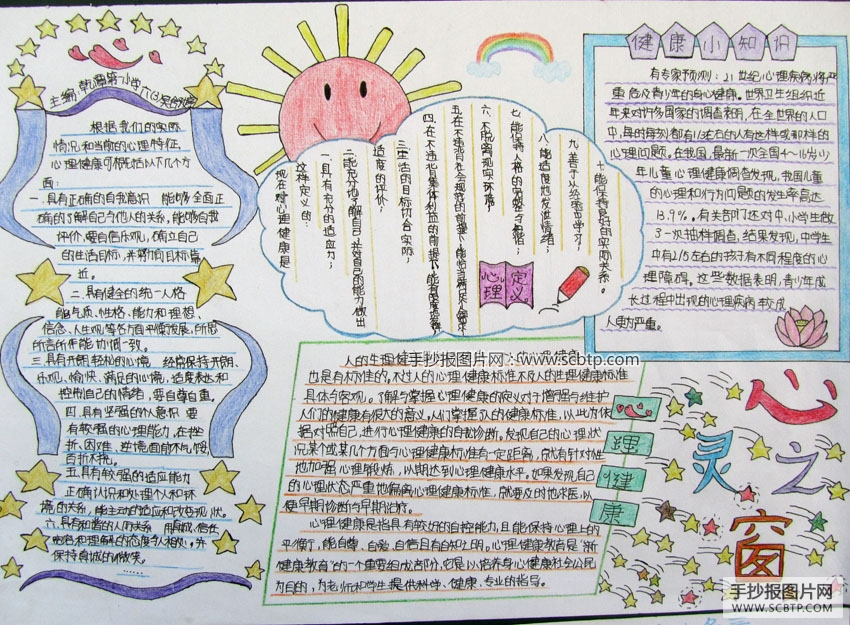 主编:乾潭第一小学六(3)
根据我们的实际
情况和当前的心理特征,
心理健康可概括以下几个方
面:
一.具有正确的自我意识 能够全面正
确的了解自己与他人的关系,能够自我
评价,要自信乐观,确立自己
的生活目标,并努力向目标靠
近。
二.具有健全的统一人格
能气质、性格、能力和理想、
信念、人生观等各方面平衡发展,所思
所言所作能协调一致。
三.具有开朗轻松的心境 经常保持开朗、
乐观、愉快、满足的心境,适度表达和
控制自己的情绪,要自尊自重。
四.具有坚强的个人意识 要
有较强的心理能力,在挫
折、困难、逆境面前不气馁,
百折不挠。
五.具有较强的适应能力
正确认识和处理个人和环
境的关系,能主动的适应和改变现状。
六.具有和谐的人际关系 用真诚、信任
宽容和理解的态度与人相处。并
保持真诚的微笑。
……
现在对心理健康是
这样定义的:
一.具有充分的适应力;
二.能充分地了解自己,并对自己的能力做出
适度的评价;
三.生活的目标切合实际;
四.在不违背集体利益的前提下能有限度发挥
五.在不违背社会规范的前提下能恰当满足个人需求
六.不脱离现实环境;
七.能保持人格的完整与和谐;
八.能适度地发泄情绪;
九.善于从经验中学习;
十.能保持良好的人际关系。
心理
定义。
健康小知识
有专家预测:21世纪心理疾病将严
重危及青少年的身心健康。世界卫生组织近
年来对许多国家的调查表明,在全世界的人口
中,每时每刻都有1/3左右的人有这样或那样的
心理问题。在我国,最新一次全国4~16岁少
年儿童心理健康调查发现,我国儿童
的心理和行为问题的发生率高达
13.9%。有关部门还对中、小学生做
3一次抽样调查,结果发现,中学生
中有1/5左右的孩子有不同程度的心
理障碍。这些数据表明,青少年成
长过程中出现的心理疾病
人更为严重。
人的生理健
手抄报图片网:www.scbtp.com
也是有标准的。不过人的心理健康标准不及人的生理健康标准
具体与客观。了解与掌握心理健康的定义对于增强与维护
人们的健康有很大的意义,人们掌握了人的健康标准,以此为依
据对照自己,进行心理健康的自我诊断。发现自己的心理状
况某个或某几个方面与心理健康标准有一定距离,就有针对性
地加强心理锻炼,以期达到心理健康水平。如果发现自己
的心理状态严重地偏离心理健康标准,就要及时地求医,以
便早期诊断与早期治疗。
心理健康是指具有较好的自控能力,且能保持心理上的
平衡,能自尊、自爱、自信且有自知之明。心理健康教育是"新
健康教育"的一个重要组成部分,它是以培养身心健康社会公民
为目的,为老师和学生提供科学、健康、专业的指导。
心
理
健
康
心
灵
之
窗
手抄报图片网
WWW.SCBTP.COM